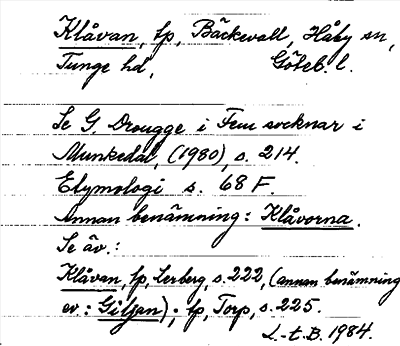 Klåvan, tp, Bäckevall, Håby sn,
Tunge hd, Göteb. l.
Se G. Drougge i Fem socknar i
Munkedal, (1980), s. 214.
Etymologi s. 68 F.
Annan benämning: Klåvorna.
Se äv.:
Klåvan, tp, Lerberg, s. 222, (annan benämning
ev: Giljan); tp, Torp, s. 225.
L.-t.B. 1984.